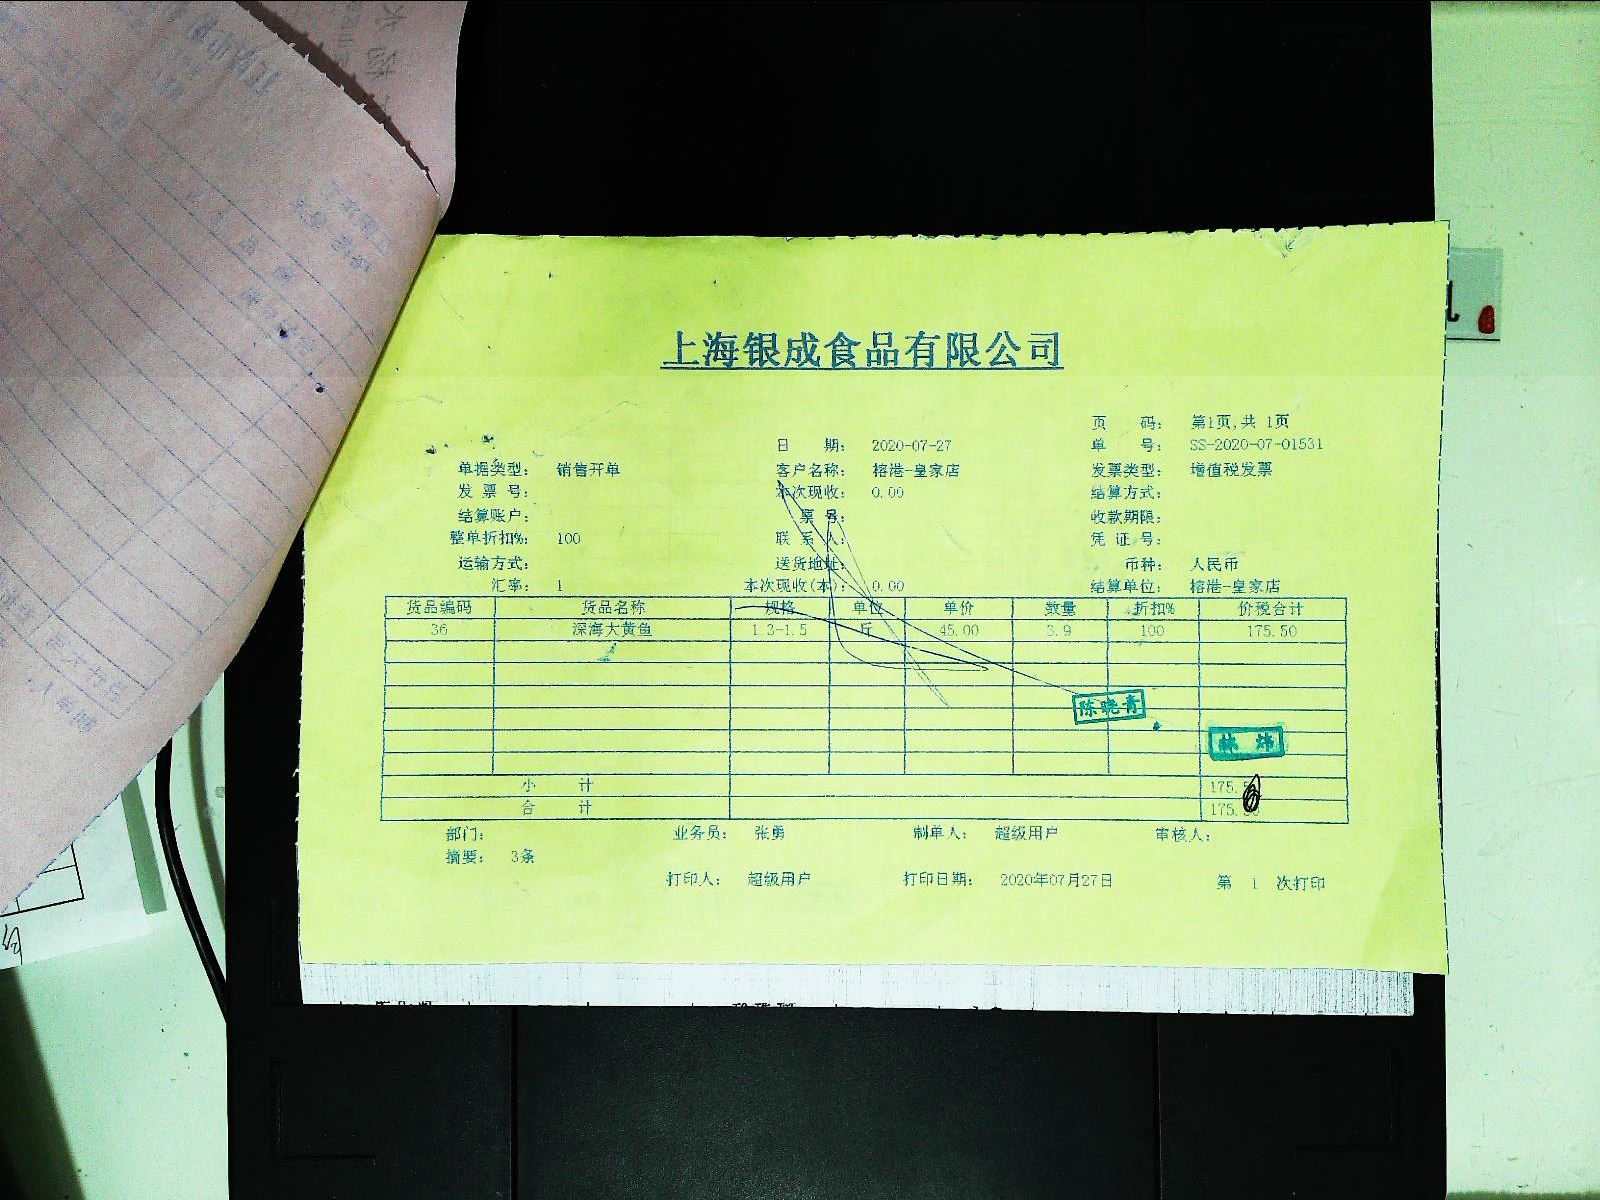 上海银成食品有限公司
页 码: 第1页,共 1页
日 期: 2020-07-27 单 号: SS-2020-07-01531
单据类型: 销售开单 客户名称: 榕港-皇家店 发票类型: 增值税发票
发 票 号: 本次现收: 0.00 结算方式:
结算账户: 票 号: 收款期限:
整单折扣%: 100 联 系 人: 凭 证 号:
运输方式: 送货地址: 币种: 人民币
汇率: 1 本次现收(本): 0.00 结算单位: 榕港-皇家店
货品编码 货品名称 规格 单位 单价 数量 折扣% 价税合计
36 深海大黄鱼 1.3-1.5 斤 45.00 3.9 100 175.50
陈晓青
林 炜
小 计 175.
合 计 175.
部门: 业务员: 张勇 制单人: 超级用户 审核人:
摘要: 3条
打印人: 超级用户 打印日期: 2020年07月27日 第 1 次打印